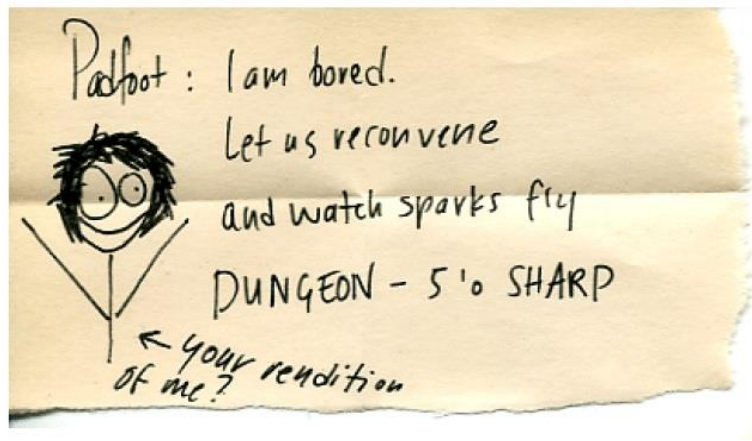 Padfoot: I am bored.
Let us reconvene
and watch sparks fly
DUNGEON - 5'o SHARP
← your rendition
of me?